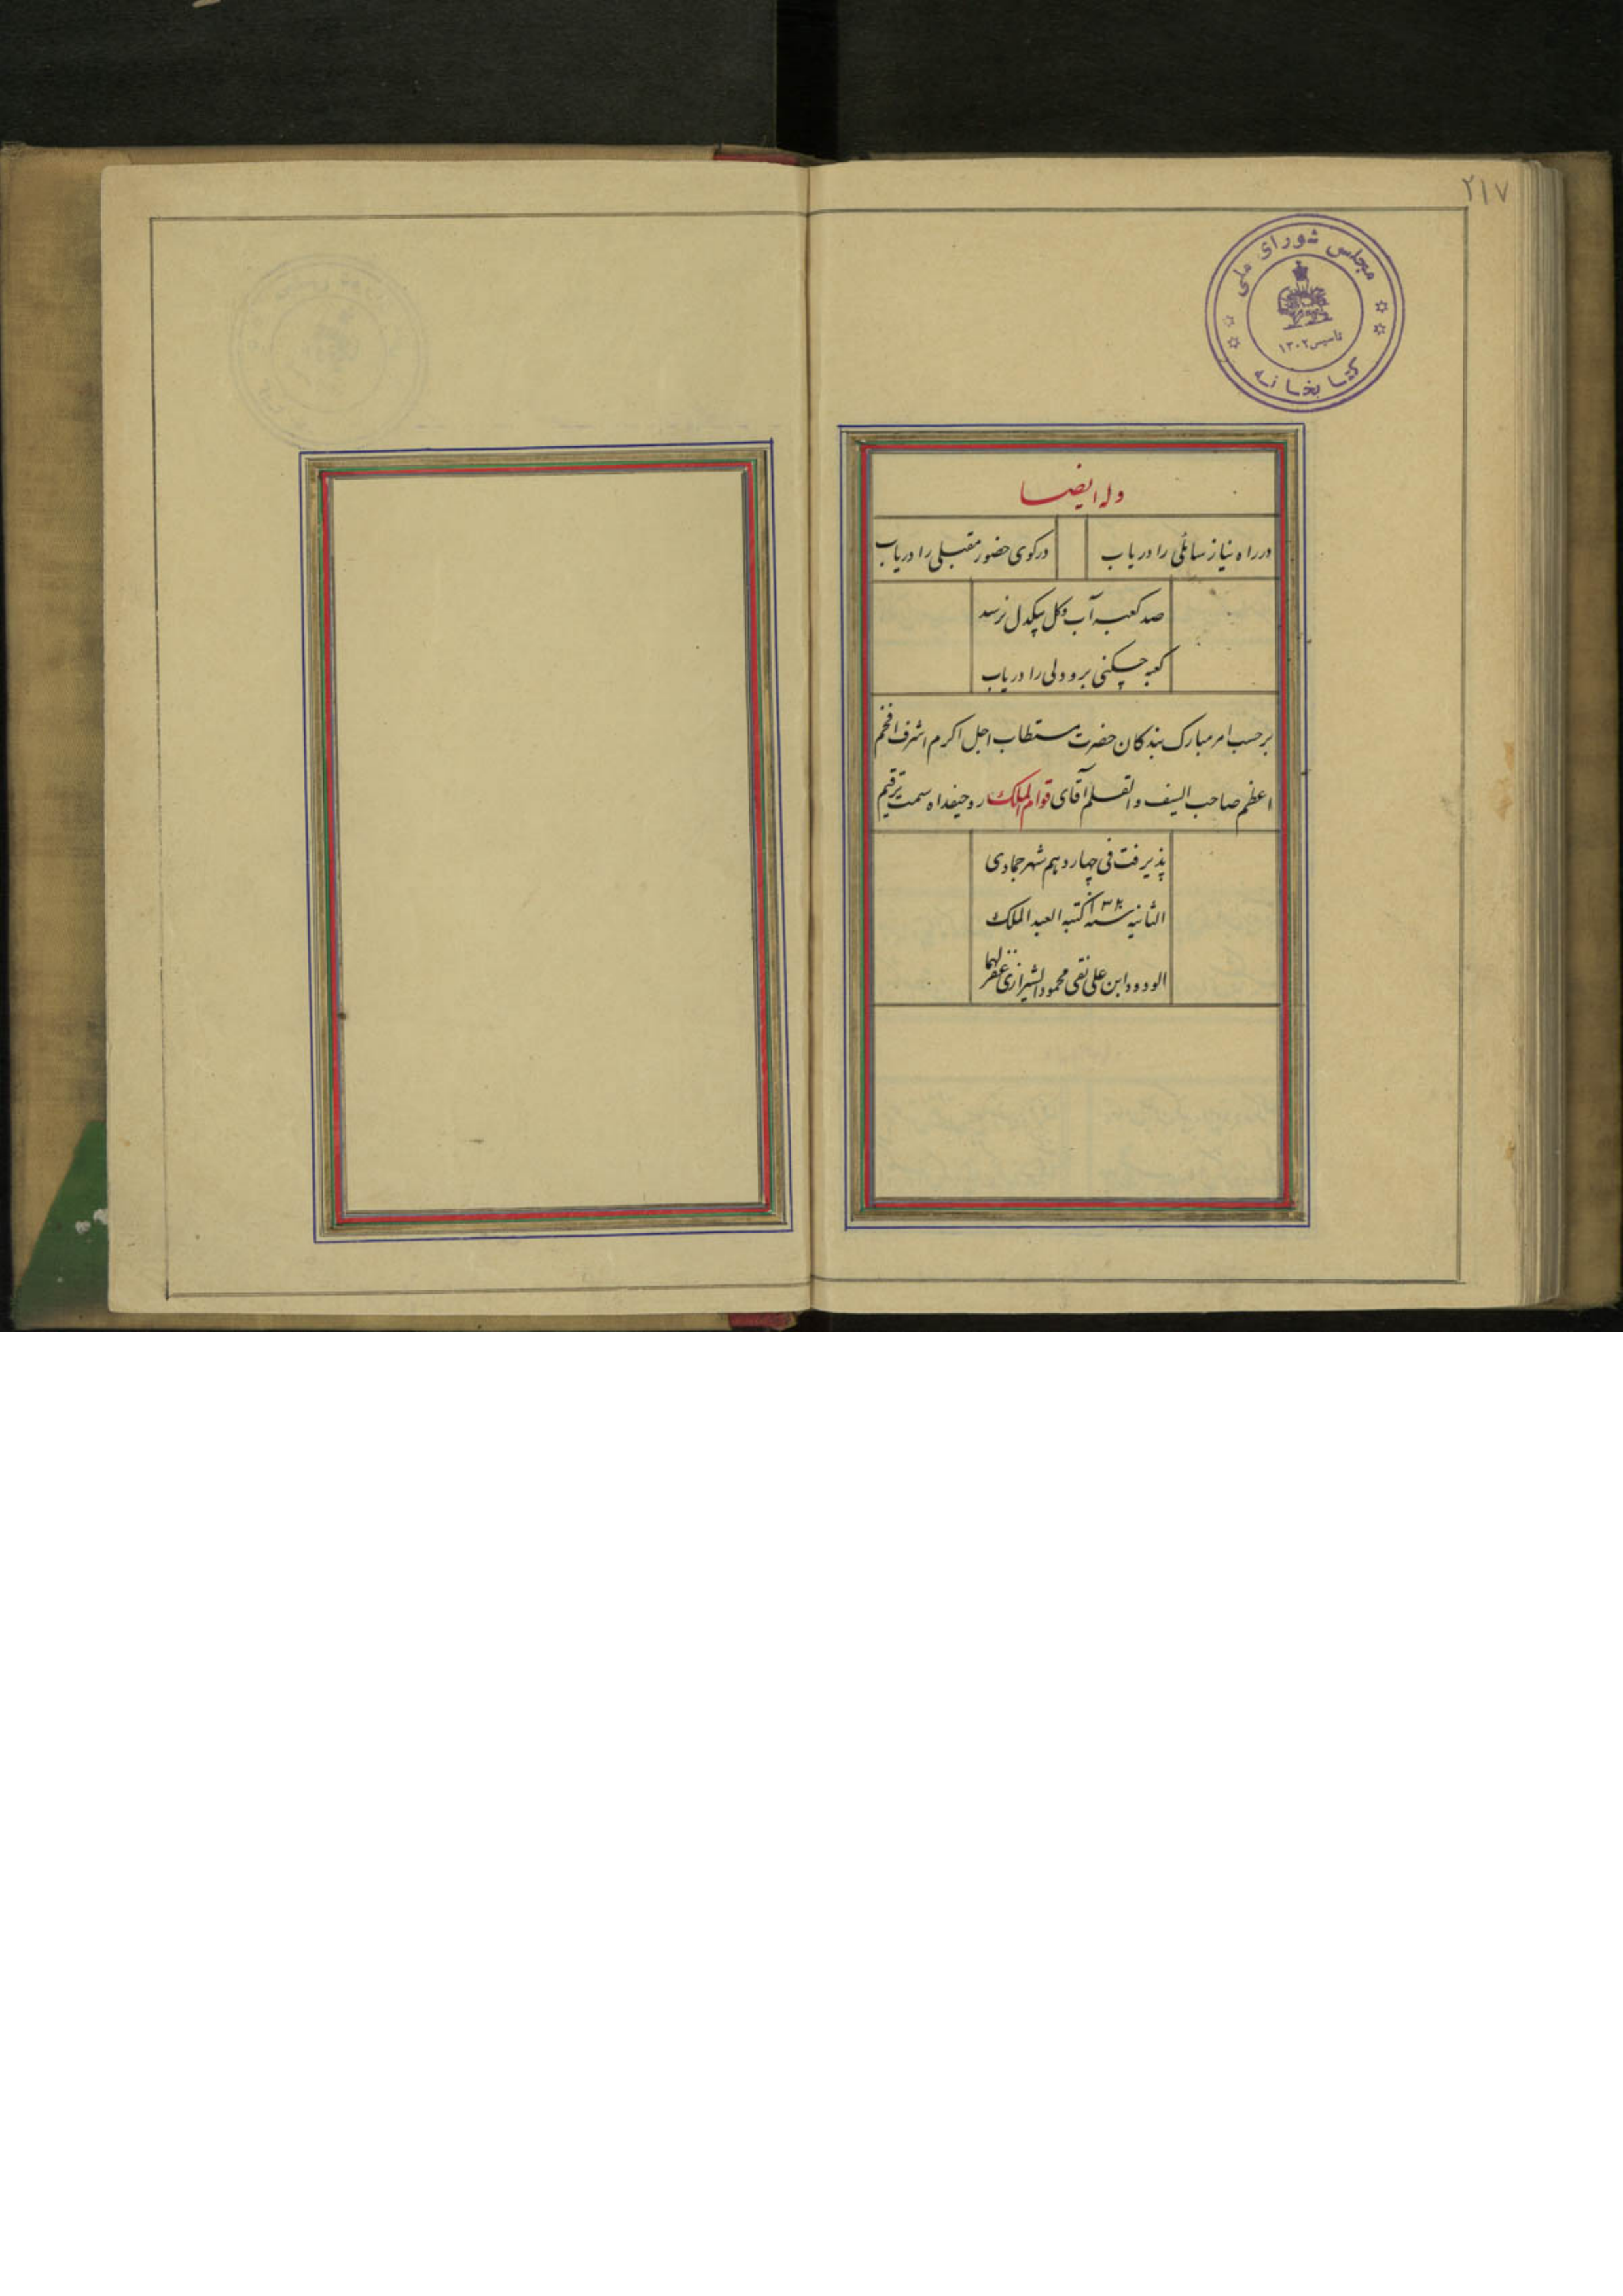 ۲۱۷
مجلس شورای ملی
تاسیس ۱۳۰۲
کتابخانه
وله ایضا
در راه نیاز سائلی را دریاب
در کوی حضور مقبلی را دریاب
صد کعبه آب و کل بیکدل نرسد
کعبه چکنی برو دلی را دریاب
برحسب امر مبارک بندکان حضرت مستطاب اجل اکرم اشرف افخم
اعظم صاحب السیف والقلم آقای قوام الملک روحیفداه سمت ترقیم
پذیرفت فی چهاردهم شهر جمادی
الثانیه سنه کتبه العبد الملک
الودود ابن علی نقی محمود الشیرازی غفر لهما